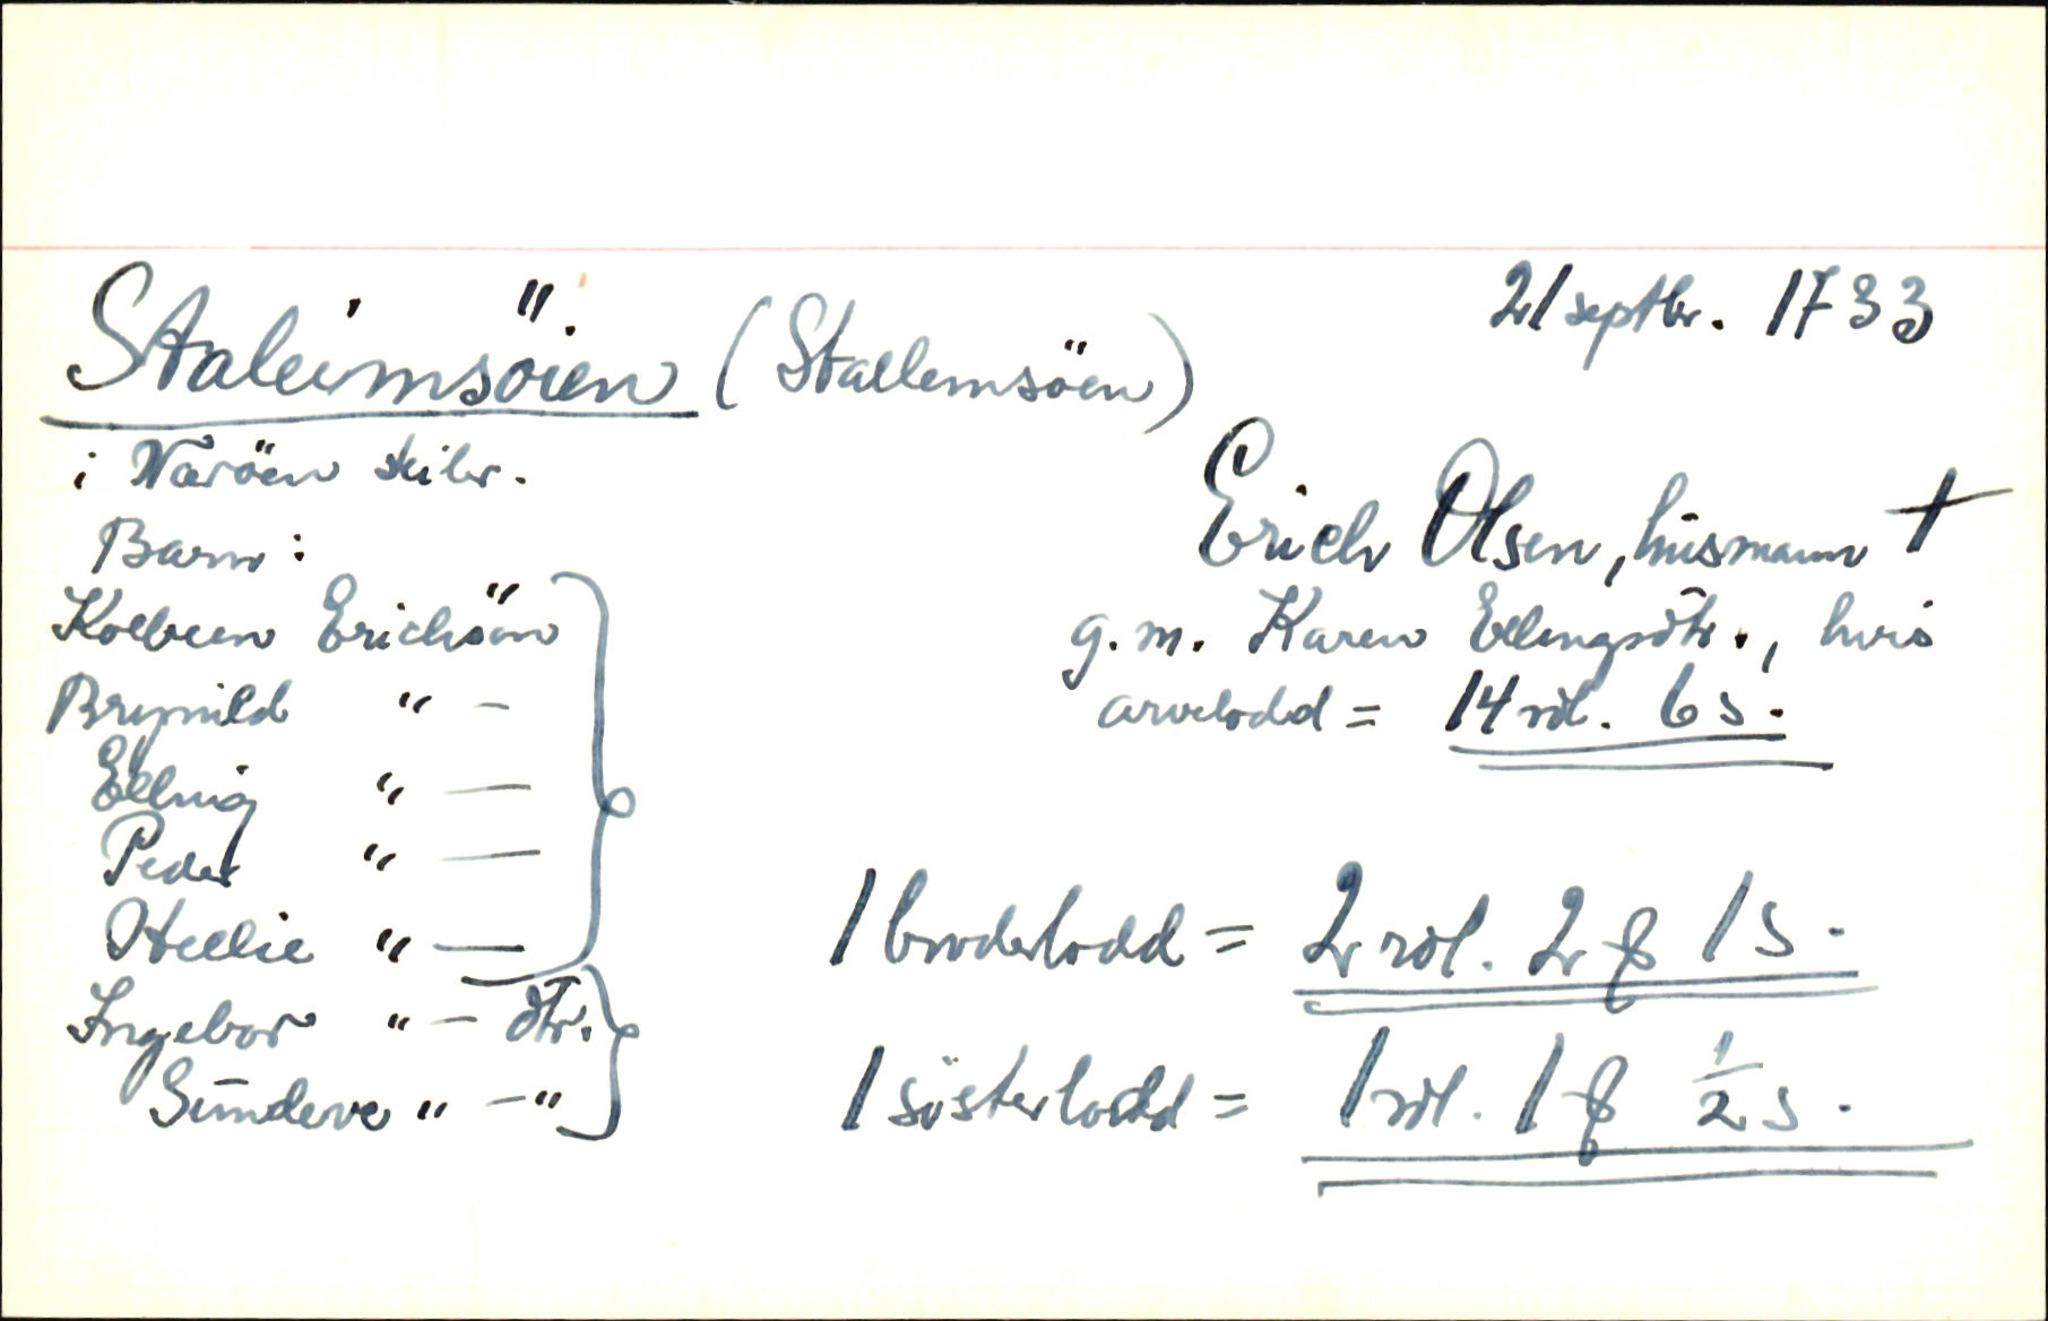 21 septbr. 1733
Staleimsöien (Stallemsöen)
i Næröen skibr.
Erich Olsen, husmann †
Barn:
g. m. Karen Ellingsdtr., hvis
arvelodd = 14 rdl. 6 s.
Kolbeen Erichsön
Brynild " —
Elling " —
Peder " —
Hellie " —
Ingebor " — dtr.
Sundeve " — "
1 broderlodd = 2 rdl. 2 ₰ 1 s.
1 süsterlodd = 1 rdl. 1 ₰ 1/2 s.